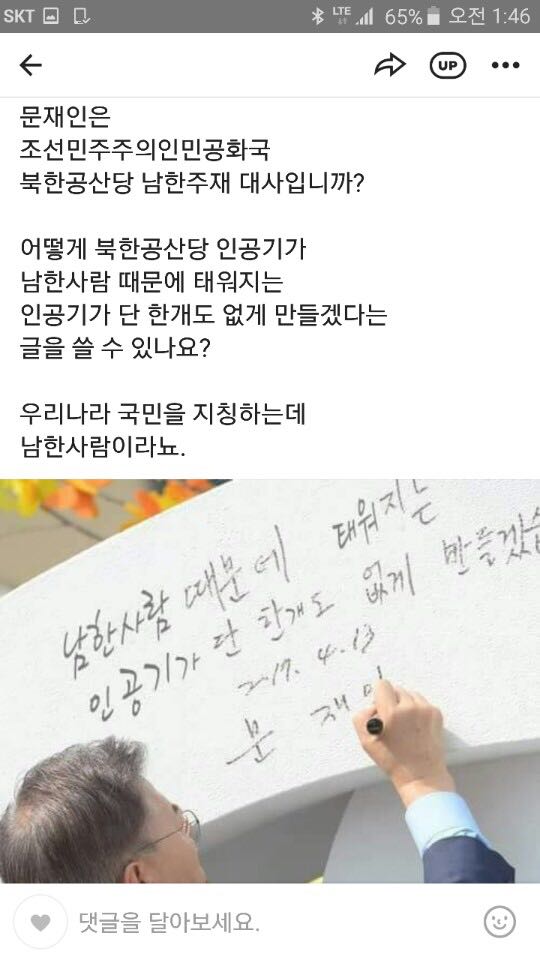 SKT
LTE
65%
오전 1:46
UP
문재인은
조선민주주의인민공화국
북한공산당 남한주재 대사입니까?
어떻게 북한공산당 인공기가
남한사람 때문에 태워지는
인공기가 단 한개도 없게 만들겠다는
글을 쓸 수 있나요?
우리나라 국민을 지칭하는데
남한사람이라뇨.
남한사람 때문에 태워지는
인공기가 단 한개도 없게 만들겠습
2017. 4. 13
문 재 인
댓글을 달아보세요.